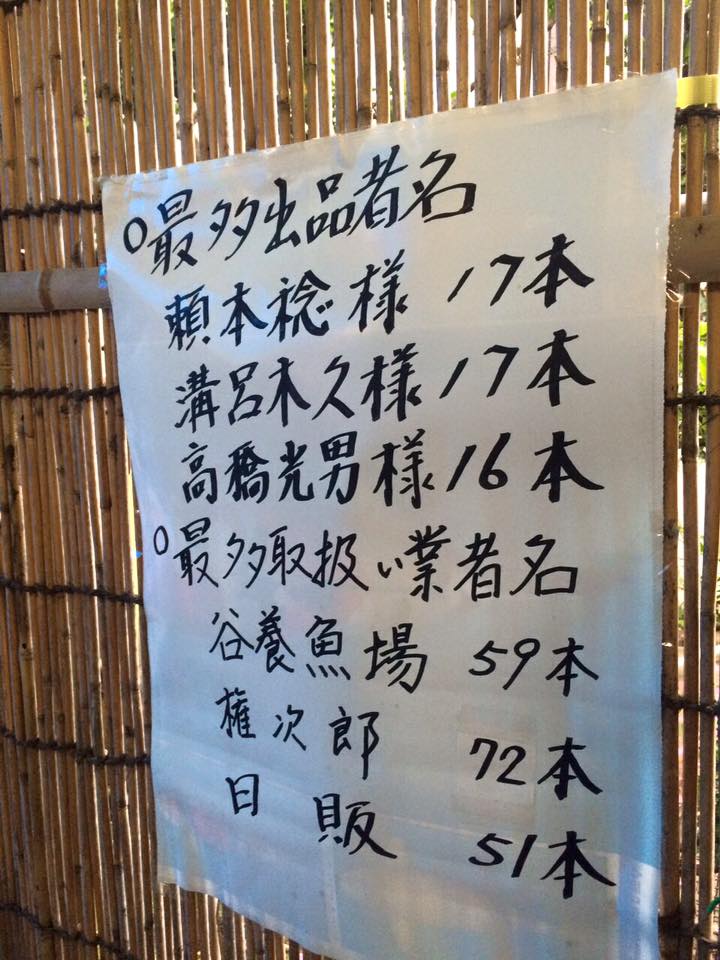 ○最多出品者名
頼本稔様 17本
溝呂木久様 17本
高橋光男様 16本
○最多取扱い業者名
谷養魚場 59本
権次郎 72本
日販 51本